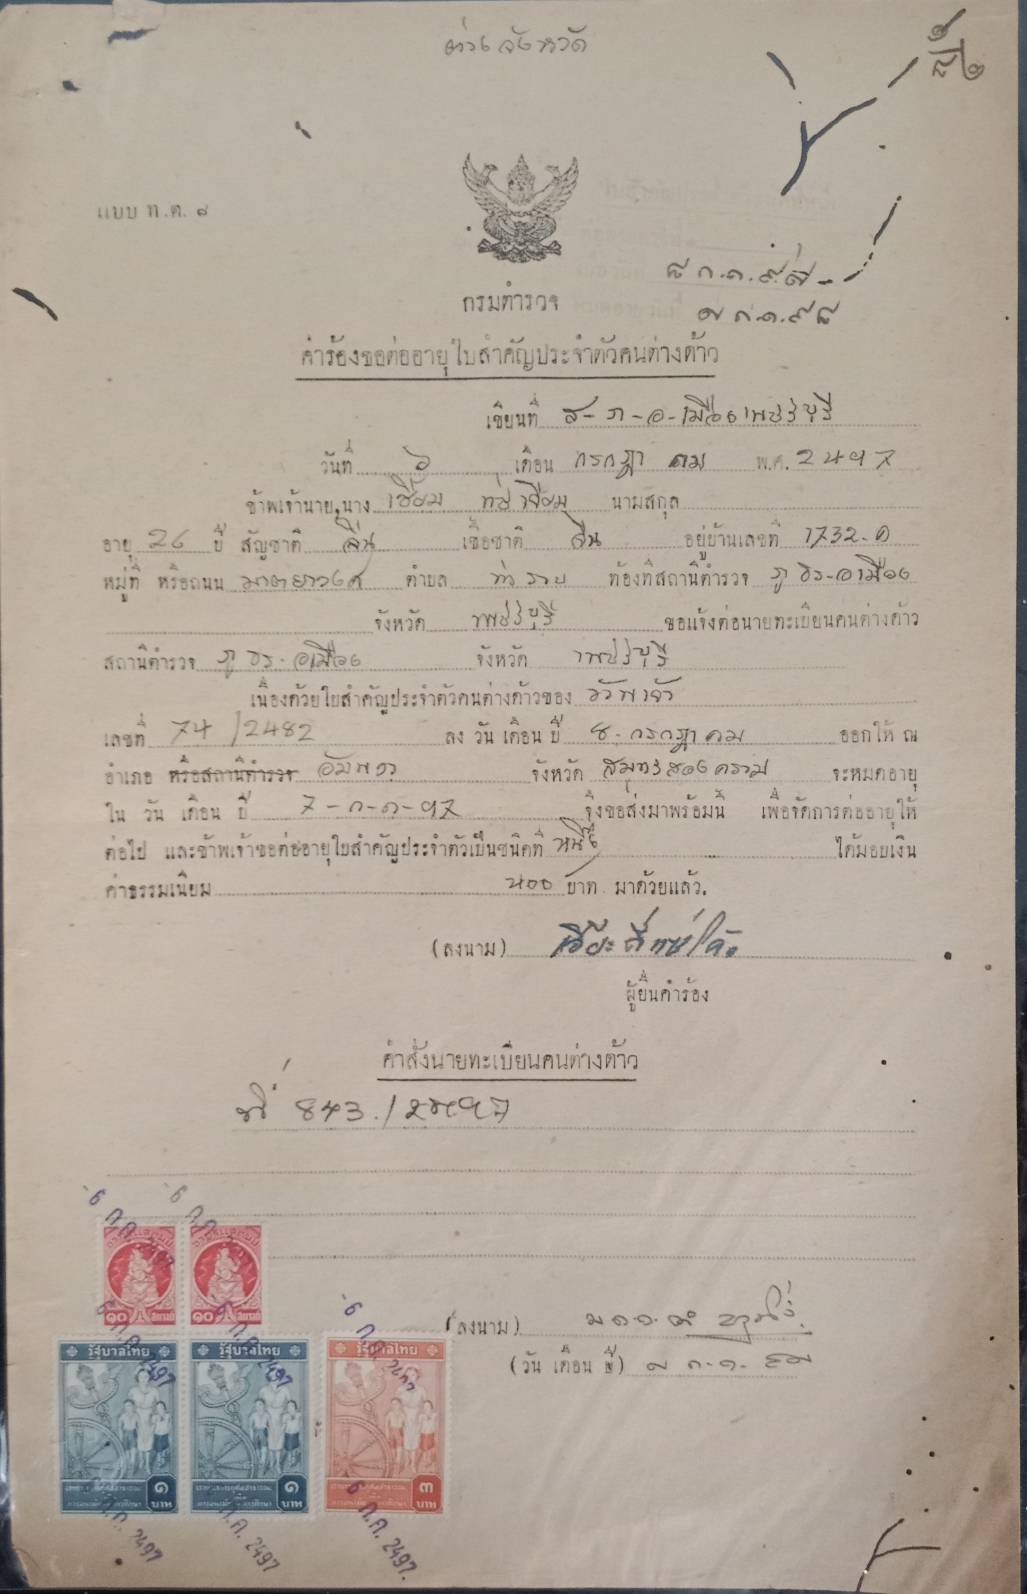 ต่างจังหวัด
แบบ ท.ต. ๘
กรมตำรวจ
คำร้องขอต่ออายุใบสำคัญประจำตัวคนต่างด้าว
เขียนที่ ส-ภ-อ-เมืองเพชรบุรี
วันที่ 6 เดือน กรกฎาคม พ.ศ. 2497
ข้าพเจ้านาย, นาง นามสกุล
อายุ 26 ปี สัญชาติ จีน เชื้อชาติ จีน อยู่บ้านเลขที่ 1732-ค
หมู่ที่ หรือถนน ตำบล ท่าราบ ท้องที่สถานีตำรวจ ภูธร-อเมือง
จังหวัด เพชรบุรี ขอแจ้งต่อนายทะเบียนคนต่างด้าว
สถานีตำรวจ ภูธร-อเมือง จังหวัด เพชรบุรี
เนื่องด้วยใบสำคัญประจำตัวคนต่างด้าวของ ข้าพเจ้า
เลขที่ 74/2482 ลง วัน เดือน ปี 8-กรกฎาคม ออกให้ ณ
อำเภอ หรือสถานีตำรวจ อัมพวา จังหวัด สมุทรสงคราม จะหมดอายุ
ใน วัน เดือน ปี 7-ก-ค-97 จึงขอส่งมาพร้อมนี้ เพื่อจัดการต่ออายุให้
ต่อไป และข้าพเจ้าขอต่ออายุใบสำคัญประจำตัวเป็นชนิดที่ หนึ่ง ได้มอบเงิน
ค่าธรรมเนียม ๒๐๐ บาท มาด้วยแล้ว.
(ลงนาม)
ผู้ยื่นคำร้อง
คำสั่งนายทะเบียนคนต่างด้าว
ที่ 843./2497
6 ก.ค. 2497
6 ก.ค. 2497
๑๐ สตางค์
๑๐ สตางค์
(ลงนาม)
(วัน เดือน ปี)
6 ก.ค. 2497
6 ก.ค. 2497
6 ก.ค. 2497
รัฐบาลไทย
รัฐบาลไทย
รัฐบาลไทย
๑ บาท
๑ บาท
๓ บาท
ก.ค. 2497
ก.ค. 2497
6 ก.ค. 2497.